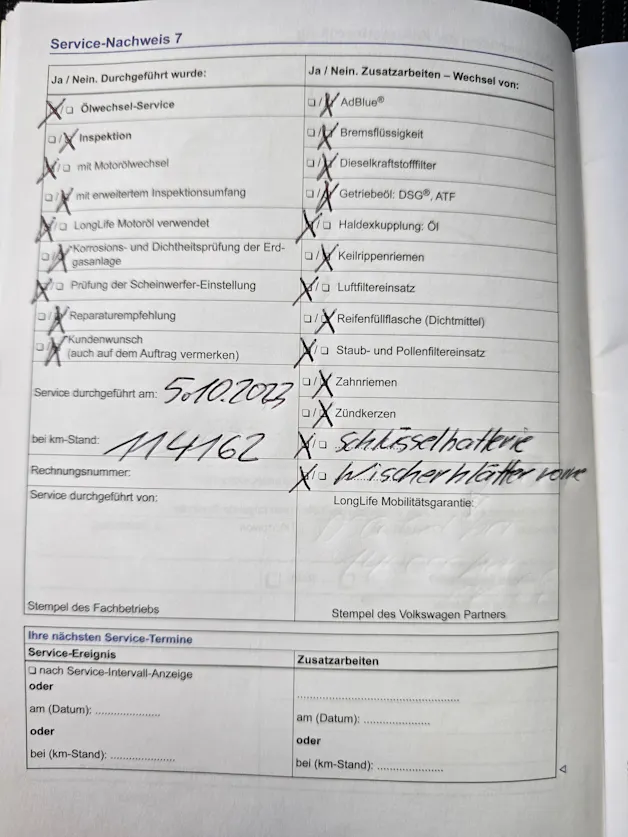 Service-Nachweis 7
Ja / Nein. Durchgeführt wurde:
☒/☐ Ölwechsel-Service
☐/☒ Inspektion
☒/☐ mit Motorölwechsel
☐/☒ mit erweitertem Inspektionsumfang
☒/☐ LongLife Motoröl verwendet
☐/☒ Korrosions- und Dichtheitsprüfung der Erd-
gasanlage
☒/☐ Prüfung der Scheinwerfer-Einstellung
☐/☒ Reparaturempfehlung
☐/☒ Kundenwunsch
(auch auf dem Auftrag vermerken)
Service durchgeführt am: 5.10.2023
bei km-Stand: 114162
Rechnungsnummer:
Service durchgeführt von:
Stempel des Fachbetriebs
Ja / Nein. Zusatzarbeiten – Wechsel von:
☐/☒ AdBlue®
☐/☒ Bremsflüssigkeit
☐/☒ Dieselkraftstofffilter
☐/☒ Getriebeöl: DSG®, ATF
☒/☐ Haldexkupplung: Öl
☐/☒ Keilrippenriemen
☒/☐ Luftfiltereinsatz
☐/☒ Reifenfüllflasche (Dichtmittel)
☒/☐ Staub- und Pollenfiltereinsatz
☐/☒ Zahnriemen
☐/☒ Zündkerzen
☒/☐ Schlüsselbatterie
☒/☐ Wischerblätter vorne
LongLife Mobilitätsgarantie:
Stempel des Volkswagen Partners
Ihre nächsten Service-Termine
Service-Ereignis
☐ nach Service-Intervall-Anzeige
oder
am (Datum): ....................
oder
bei (km-Stand): ....................
Zusatzarbeiten
..................................................
am (Datum): ....................
oder
bei (km-Stand): ....................